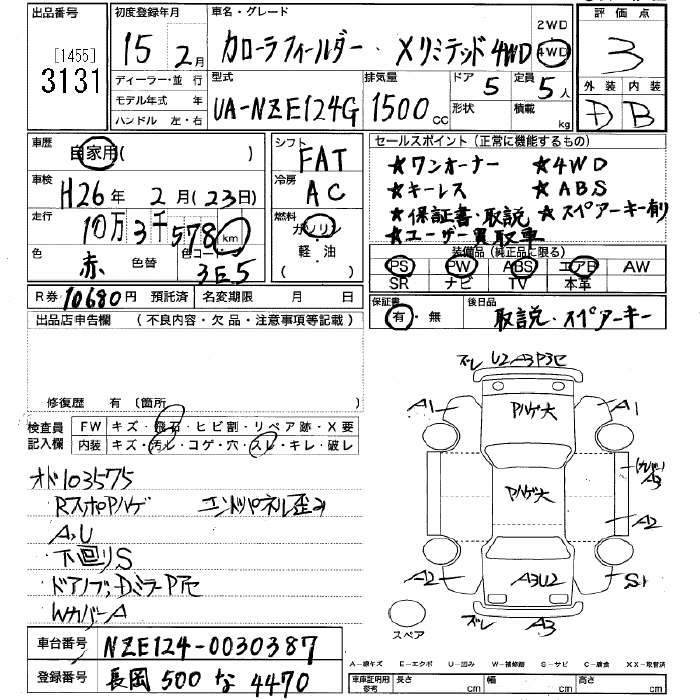 出品番号
[1455]
3131
初度登録年月
15年 2月
ディーラー・並行
モデル年式 年
ハンドル 左・右
車名・グレード
カローラフィールダー・Xリミテッド4WD
2WD
4WD
型式
UA-NZE124G
排気量
1500 cc
ドア 5
定員 5人
形状
積載 kg
評価点
3
外装 内装
D B
車歴
自家用( )
車検
H26年 2月(23日)
走行
10万3千578 km
色 赤 色替 色コード 3E5
シフト
FAT
冷房
AC
燃料
ガソリン
軽・油
( )
セールスポイント(正常に機能するもの)
★ワンオーナー ★4WD
★キーレス ★ABS
★保証書・取説 ★スペアーキー有り
★ユーザー買取車
装備品(純正品に限る)
PS PW ABS エアB AW
SR ナビ TV 本革
R券 10680円 預託済 名変期限 月 日
保証書
有・無
後日品
取説・スペアーキー
出品店申告欄 (不良内容・欠品・注意事項等記載)
修復歴 有(箇所 )
検査員記入欄
FW キズ・飛石・ヒビ割・リペア跡・X要
内装 キズ・汚レ・コゲ・穴・スレ・キレ・破レ
オド103575
RスポPハゲ エンドパネル歪み
A,U
下回りS
ドアノブ,DミラーPアセ
WカバーA
車台番号 NZE124-0030387
登録番号 長岡 500 な 4470
ズレ U2 A3 P3セ
A1 Pハゲ大 A1
(カバー)
A3
Pハゲ大
A2
A2 A3U2 S1
ズレ A3
スペア
A-線キズ E-エクボ U-凹み W-補修跡 S-サビ C-腐食 XX-取替済
車庫証明用参考 長さ cm 幅 cm 高さ cm